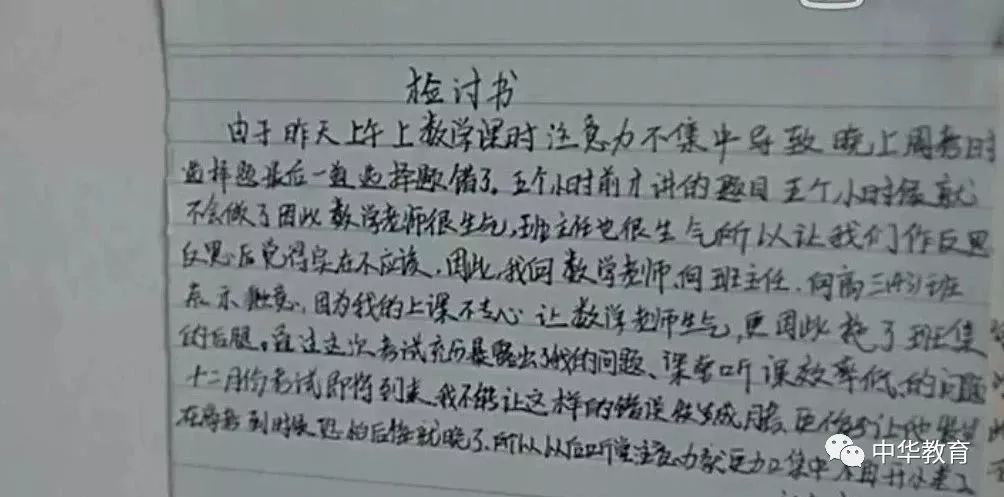 检讨书
由于昨天上午上数学课时注意力不集中导致晚上周考时
选择题最后一道选择题错了。五个小时前才讲的题目五个小时候就
不会做了因此数学老师很生气,班主任也很生气所以让我们作反思
反思后觉得实在不应该,因此,我向数学老师、向班主任、向高三(43)班
表示歉意,因为我的上课不专心让数学老师生气,更因此拖了班集
的后腿。通过这次考试充分暴露出了我的问题、课堂听课效率低的问题
十二月份考试即将到来,我不能让这样的错误
到时候恐怕后悔就晚了,所以以后听课注意力就更加集中不再开小差了
中华教育